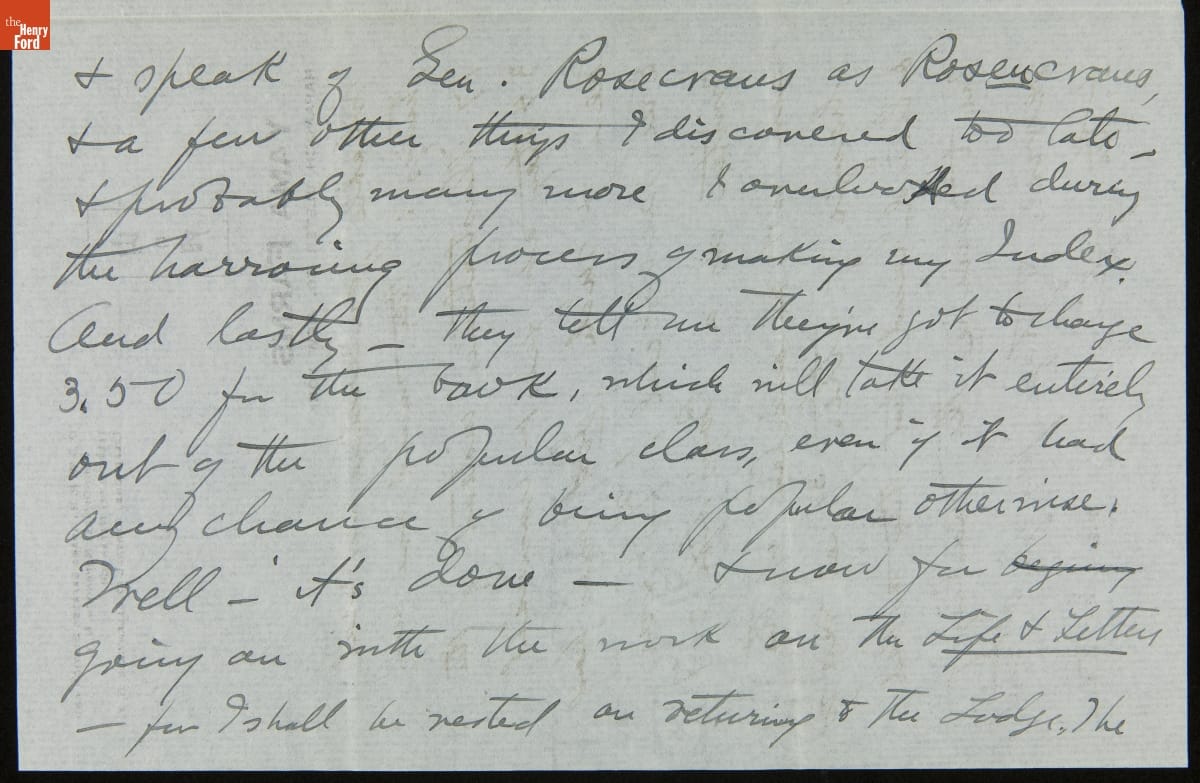 the
Henry
Ford
& speak of Gen. Rosecrans as Rosencrans,
& a few other things I discovered too late –
& probably many more I overlooked during
the harrowing process of making my Index.
And lastly – they tell me they're got to charge
3.50 for the book, which will take it entirely
out of the popular class, even if it had
any chance of being popular otherwise.
Well – it's done – & now for begining
going on with the work on the Life & Letters
– for I shall be rested on returning to the Lodge. The